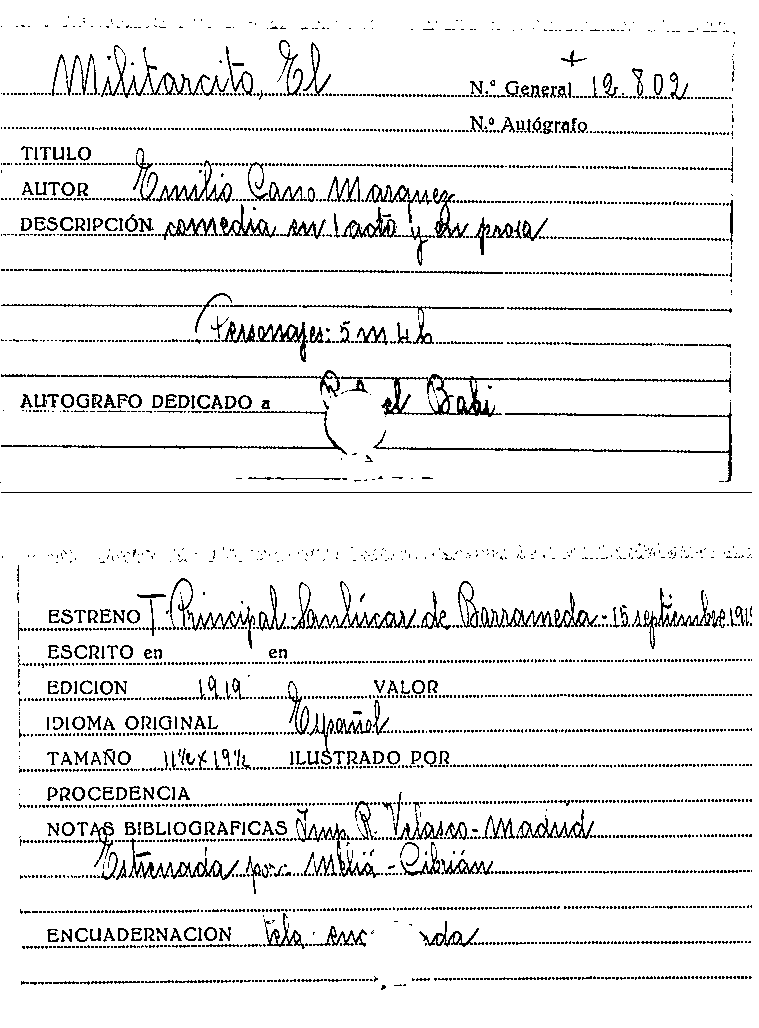 Militarcito, El
N.º General 12.802
N.º Autógrafo
TITULO
AUTOR Emilio Cano Marquez
DESCRIPCIÓN comedia en 1 acto y en prosa
Personajes: 5 m 4 h
AUTOGRAFO DEDICADO a el Babi
ESTRENO T. Principal - Sanlúcar de Barrameda - 15 septiembre 191
ESCRITO en en
EDICION 1919 VALOR
IDIOMA ORIGINAL Español
TAMAÑO 11½ x 19½ ILUSTRADO POR
PROCEDENCIA
NOTAS BIBLIOGRAFICAS Imp. R. Velasco - Madrid
Estrenada por - Meliá - Cibrián
ENCUADERNACION tela